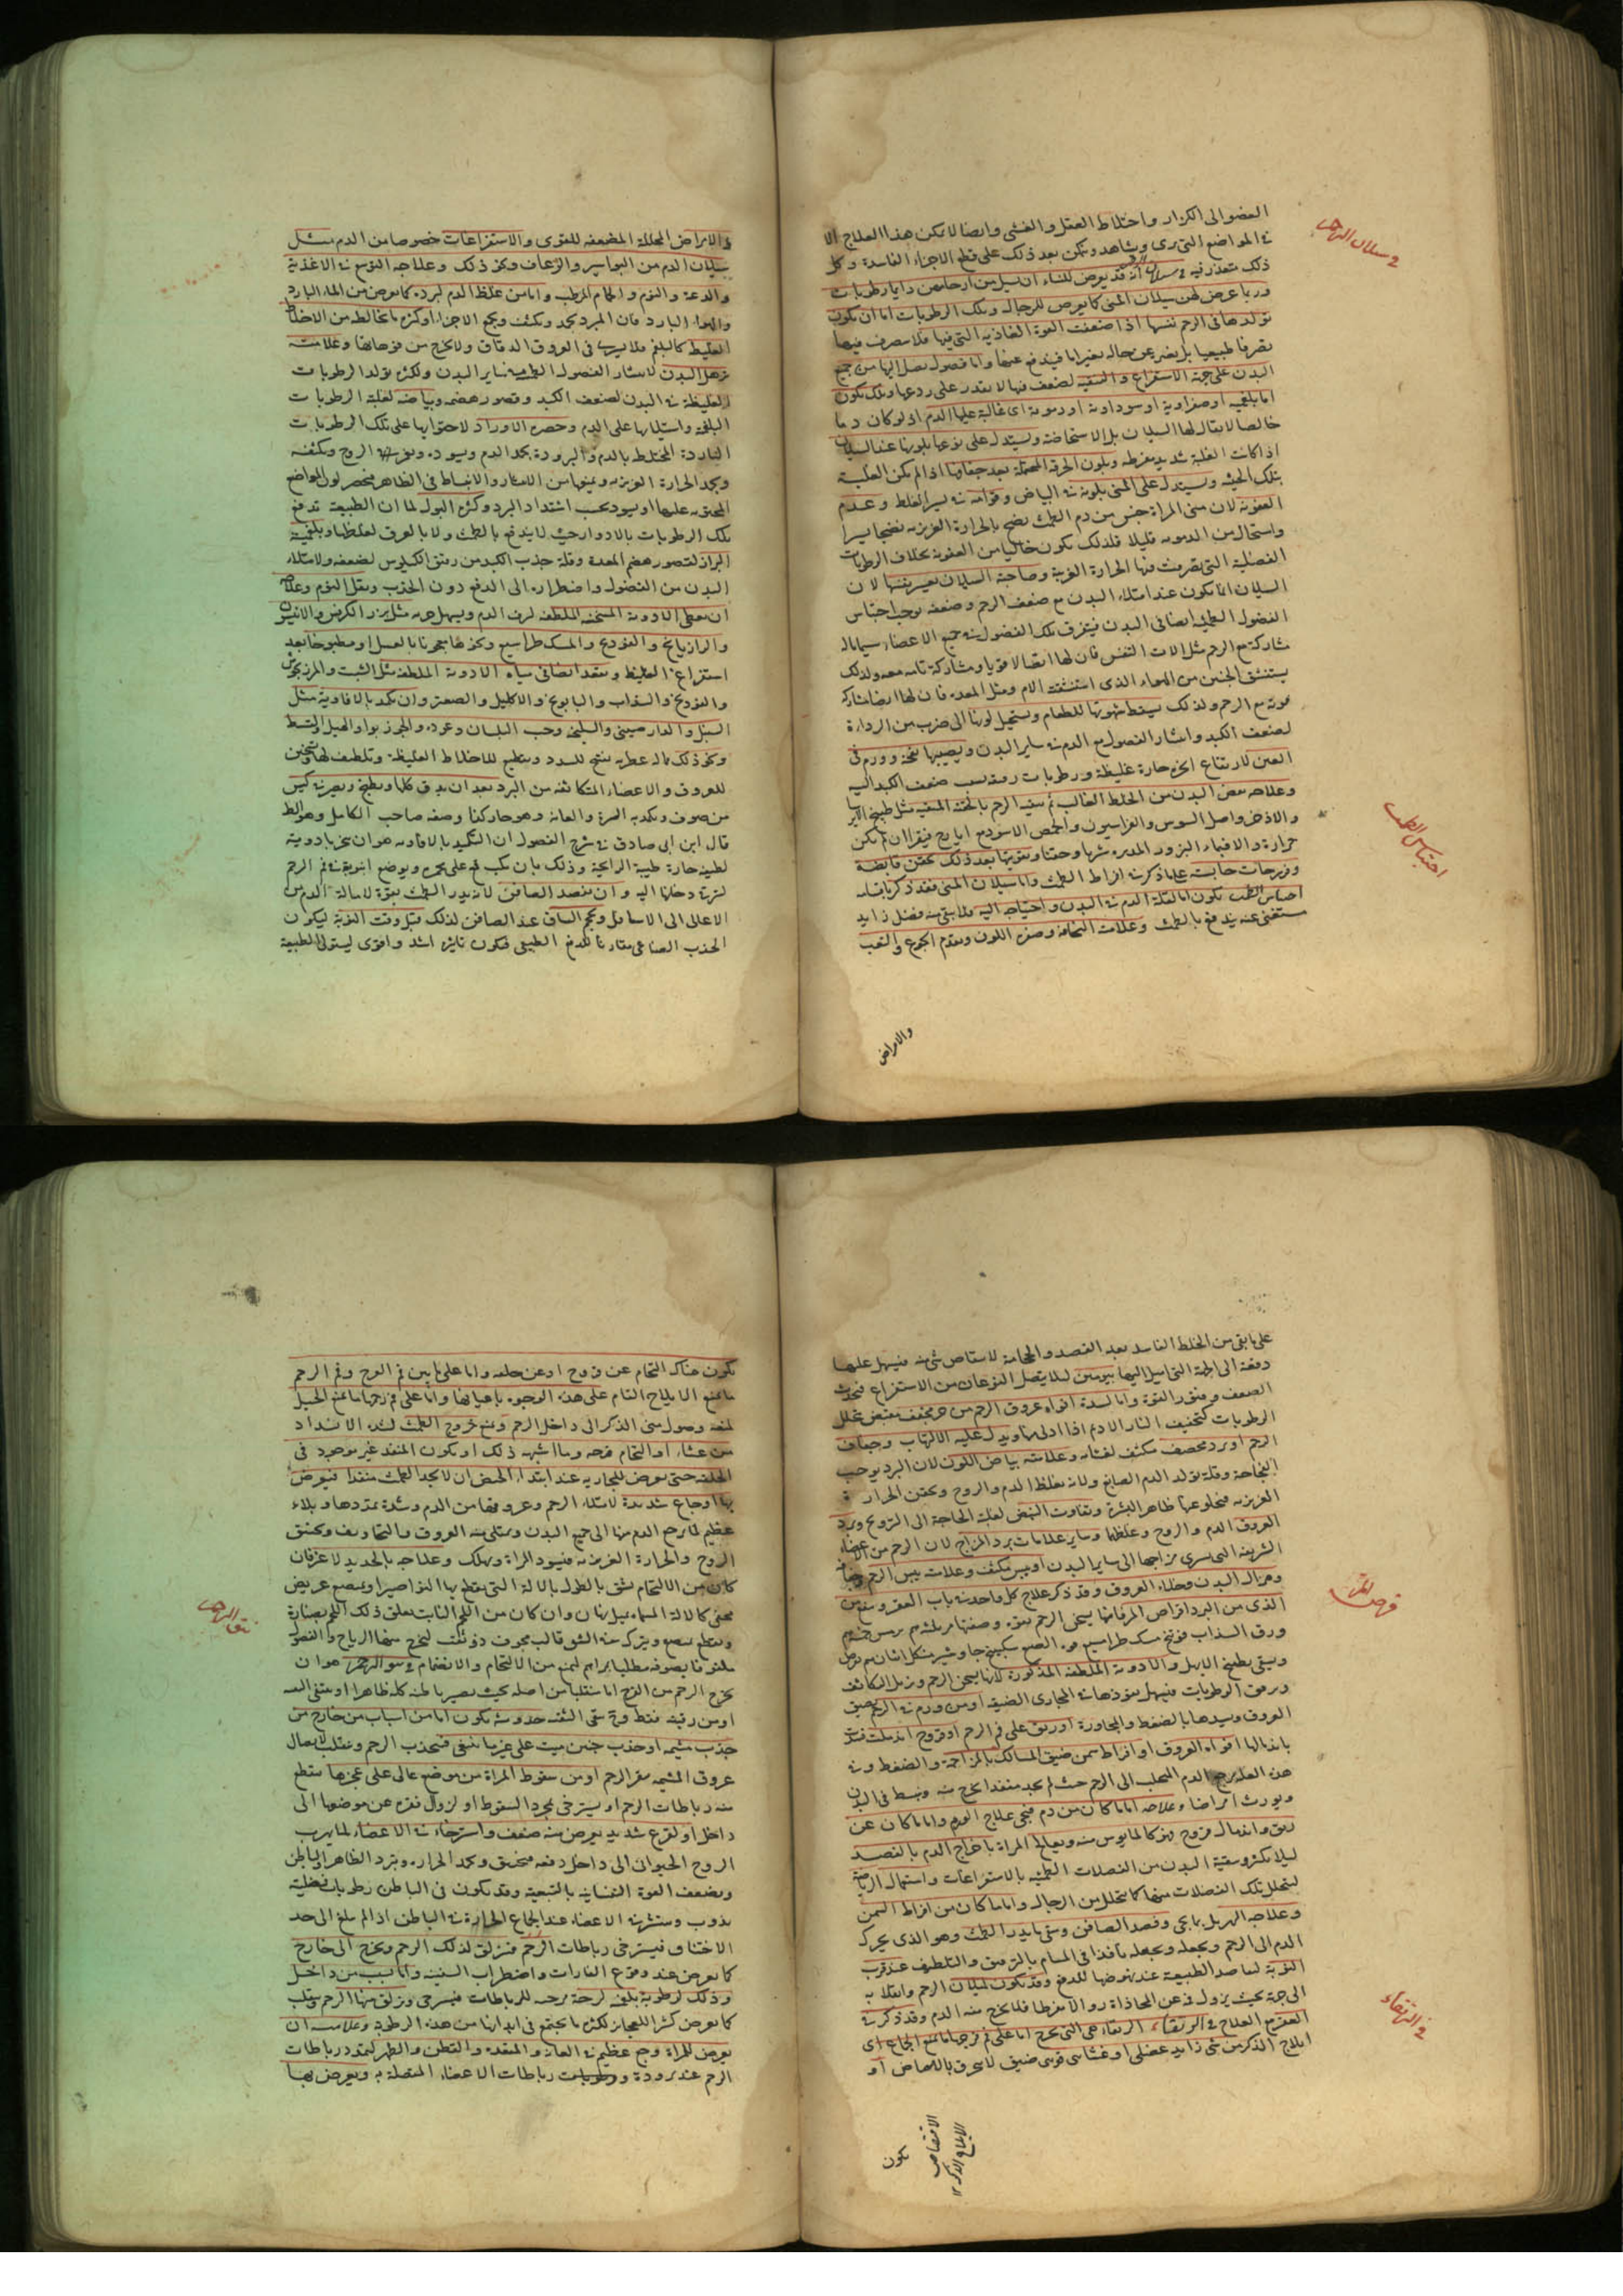 في سيلان الرحم
العضو الى الكزاز واختلاط العقل والغشى وايضا لا يمكن هذا العلاج الا
في المواضع التي يرى ويشاهد ويمكن بعد ذلك على قطع الاجزاء الفاسدة وكل
ذلك متعذر فيه في سيلان الرحم انه قد يعرض للنساء ان يسيل من ارحامهن دايما رطوبات
وربما عرض لهن سيلان المنى كما يعرض للرجال وتلك الرطوبات اما ان يكون
تولدها في الرحم نفسها اذا ضعفت القوة الغاذية التي فيها فلا يتصرف فيها
تصرفا طبيعيا بل يتغير عن حاله تغيرا ما فيندفع عنها واما فضول تصل اليها من جميع
البدن على جهة الاستفراغ والتنقية لضعف فيها لا يقدر على ردعها وتلك تكون
اما بلغمية او صفراوية او سوداوية او دموية اى غالبة عليها الدم اذ لو كان دما
خالصا لا يقال لها السيلان بل الاستحاضة ويستدل على نوعها بلونها عند السيلان
اذا كانت الغلبة شديدة مفرطة وبلون الخرقة المحتملة بعد جفافها اذا لم يكن الغلبة
بتلك الحيثية ويستدل على المنى بلونه في البياض وقوامه في يسير الغلظ وعدم
العفونة لان منى المراة جنس من دم الطمث نضج بالحرارة الغريزية نضجا يسيرا
واستحال من الدموية قليلا فلذلك يكون خاليا من العفونة بخلاف الرطوبات
الفضلية التي تصرفت فيها الحرارة الغريبة وصاحبة السيلان يعسر نفسها لان
السيلان انما يكون عند امتلاء البدن مع ضعف الرحم وضعفه يوجب احتباس
الفضول الطمثية ايضا في البدن فيتفرق تلك الفضول في جميع الاعضاء سيما ماله
مشاركة مع الرحم مثل الات التنفس فان لها اتصالا قويا ومشاركة تامة معه ولذلك
يستنشق الجنين من الهواء الذى استنشقته الام ومثل المعدة فان لها ايضا مشاركة
قوية مع الرحم ولذلك يسقط شهوتها للطعام ويستحيل لونها الى ضرب من الرداءة
لضعف الكبد وانتشار الفضول مع الدم في ساير البدن ويصيبها نفخة وورم في
العين لارتفاع ابخرة حارة غليظة ورطوبات رقيقة بسبب ضعف الكبد اليه
وعلاجه نفض البدن من الخلط الغالب ثم تنقية الرحم بالحقنة المنقية مثل طبيخ الايرسا
والاذخر واصل السوس والفراسيون والحمص الاسود مع ايارج فيقرا ان لم يكن
حرارة والاقبياء البزور المدرة شربا وحقنا وتقويتها بعد ذلك بحقن قابضة
وفرزجات حابسة على ما ذكر في افراط الطمث واما سيلان المنى فقد ذكر باقسامه
احتباس الطمث يكون اما لقلة الدم في البدن واحتياجه اليه فلا يبقى منه فضل زايد
مستغنى عنه يندفع بالطمث وعلامته النحافة وصفرة اللون وتقدم الجوع والتعب
احتباس الطمث
والامراض
والامراض المحللة المضعفة للقوى والاستفراغات خصوصا من الدم مثل
سيلان الدم من البواسير والرعاف ونحو ذلك وعلاجه التوسع في الاغذية
والدعة والنوم والحمام المرطب واما من غلظ الدم لبرد كما يعرض من الماء البارد
والهواء البارد فان المبرد يجمد ويكثف ويجمع الاجزاء او لكثرة ما يخالطه من الاخلاط
الغليظة كالبلغم فلا يسرى في العروق الدقاق ولا يخرج من فوهاتها وعلامته
ترهل البدن لانتشار الفضول الطمثية في ساير البدن ولكثرة تولد الرطوبات
الغليظة في البدن لضعف الكبد وقصور هضمه وبياضه لغلبة الرطوبات
البلغمية واستيلائها على الدم وخضرة الاوراد لاحتوائها على تلك الرطوبات
الباردة المختلط بالدم والبرودة يجمد الدم ويسوده ويقهر الروح ويكثفه
ويجمد الحرارة الغريزية ويمنعها من الانتشار والانبساط في الظاهر فيخضر لون المواضع
المحتوية عليها او يسود بحسب اشتداد البرد وكثرة البول لما ان الطبيعة تدفع
تلك الرطوبات بالادرار حيث لا يندفع بالطمث ولا بالعرق لغلظها وبلغمية
البراز لقصور هضم المعدة وقلة جذب الكبد من رقيق الكيلوس لضعفه ولامتلاء
البدن من الفضول واضطراره الى الدفع دون الجذب وثقل النوم وعلاجه
ان يعطى الادوية المسخنة الملطفة لرقة الدم ويسهل جريه مثل بزر الكرفس والانيسون
والرازيانج والفودنج والمسك طرامشيع ونحوها معجونا بالعسل او مطبوخا بعد
استفراغ الغليظ ويقعد ايضا في مياه الادوية الملطفة مثل الشبت والمرزنجوش
والفودنج والسذاب والبابونج والاكليل والصعتر وان تكمد بالافاوية مثل
السنبل والدار صينى والسليخة وحب البلسان وعوده والجوز بوا والهيل والقسط
ونحو ذلك ماله عطرية يفتح للسدد وتقطيع للاخلاط الغليظة وتلطيف لها وتسخين
للعروق والاعضاء المتكاثفة من البرد بعد ان يدق كلها ويطبخ ويصر في كيس
من صوف ويكمد به السرة والعانة وهو حار كذا وصفه صاحب الكامل وهو غلط
قال ابن ابى صادق في شرح الفصول ان التكميد بالافاويه هو ان يبخر بادوية
لطيفة حارة طيبة الرايحة وذلك بان يكب قمع على مجمرة ويوضع انبوبة في فم الرحم
لترقى دخانها اليه وان يفصد الصافن لانه يدر الطمث بقوة لامالة الدم من
الاعالى الى الاسافل ويحجم الساق عند الصافن لذلك قبل وقت النوبة ليكون
الجذب الصناعى مقارنا للدفع الطبيعى فيكون تاثيره اشد واقوى ليستولى الطبيعة
على ما بقى من الخلط الفاسد بعد الفصد والحجامة لانتقاص شى منه فيسهل عليها
دفعه الى الجهة التي اميل اليها بيومين ليلا يتصل النوعان من الاستفراغ فيحدث
الضعف وفتور القوة واما لسدة افواه عروق الرحم من حر مجفف مقبض بتحلل
الرطوبات كتجفيف النار الادم اذا ادنى منها ويدل عليه الالتهاب وجفاف
الرحم او برد محصف مكثف لفتاته وعلامته بياض اللون لان البرد يوجب
الفجاجة وقلة تولد الدم الصابغ ولانه يغلظ الدم والروح ويحقن الحرارة
الغريزية فيخلو عنها ظاهر البشرة وتفاوت النبض لقلة الحاجة الى الترويح وبرد
العروق الدم والروح وغلظها وساير علامات برد المزاج لان الرحم من الاعضاء
الشريفة التي يسرى مزاجها الى ساير البدن او يبس مكثف وعلامته يبس الرحم وجفافه
وهزال البدن وخلاء العروق وقد ذكر علاج كل واحد في باب العقر وينفع من
الذى من البرد اقراص المر فانها يسخن الرحم بقوة وصفتها مر ثلثة دراهم ترمس خمسة دراهم
ورق السذاب فوتنج مسك طرامشيع فوة الصبغ سكبينج جاوشير من كل اثنان يقرص
ويسقى بطبيخ الابهل والادوية الملطفة المذكورة لانها يسخن الرحم ويزيل التكاثف
ويرقق الرطوبات فيسهل نفوذها في المجارى الضيقة او من ورم في الرحم يضيق
العروق ويسدها بالضغط والمجاورة او رتق على فم الرحم او قروح اندملت فسدت
باندمالها افواه العروق او افراط سمن ضيق المسالك بالمزاحمة والضغط وفي
هذه العلة يرجع الدم المنجلب الى الرحم حيث لم يجد منفذا يخرج منه وينبسط في البدن
ويورث امراضا وعلاجه اما ما كان من دم فنحو علاج الورم واما ما كان عن
رتق واندمال قروح فهو كالمايوس منه ويعالج المراة باخراج الدم بالفصد
ليلا يكثر وتنقية البدن من الفضلات الطمثية بالاستفراغات واستعمال الرياضة
ليتحلل تلك الفضلات منها كما يتحلل من الرجال واما ما كان من افراط السمن
وعلاجه الهزيل بما يجى وفصد الصافن وسقى ما يدر الطمث وهو الذى يحرك
الدم الى الرحم ويجعله نافذا في المسام بالترقيق والتلطيف عند قرب
النوبة ليعاضد الطبيعة عند نهوضها للدفع وقد يكون لميلان الرحم وانقلابه
الى جهة بحيث يزول فمه عن المحاذاة فلا يخرج منه الدم وقد ذكر في
العقر مع العلاج في الرتقاء الرتقاء هي التي يخرج اما على فم فرجها ما يمنع الجماع اى
ايلاج الذكر من شى زايد عضلى او غشاى قوى ضيق لا يخرق بالافتضاض او
قرص المر
في الرتقاء
الافتضاض
الايلاج الذكر ١٢
يكون
يكون هناك التحام عن قروح او عن خلقة واما على ما بين فم الفرج وفم الرحم
ما يمنع الايلاج التام على هذه الوجوه باعيانها واما على فم رحمها ما يمنع الحبل
لمنعه وصول منى الذكر الى داخل الرحم ومنع خروج الطمث لشدة الانسداد
من غشاء او التحام قرحة وما اشبه ذلك او يكون المنفذ غير موجود في
الخلقة حتى يعرض للجارية عند ابتداء الحيض ان لا يجد الطمث منفذا فيعرض
بها اوجاع شديدة لامتلاء الرحم وعروقها من الدم وشدة تمددها وبلاء
عظيم لما يرجع الدم منها الى جميع البدن ويمتلى منه العروق والتجاويف ويختنق
الروح والحرارة الغريزية فيسود المراة ويهلك وعلاجه بالحديد لا غير فان
كان من الالتحام يشق بالطول بالالة التي يقطع بها النواصير او بمبضع عريض
مخفى كالالة المسماة وان كان من اللحم الثابت يعلق ذلك اللحم بصنارة
ويقطع بمبضع ويترك في الشق قالب مجوف ذو ثقب ليخرج منها الرياح والفضول
ملفوفا بصوفة مطليا بمراهم ليمنع من الالتحام والانضمام في نتو الرحم هو ان
يخرج الرحم من الفرج اما منقلبا من اصله بحيث يصير باطنه كله ظاهرا او
او من رقبته فقط حدوثه يكون اما من اسباب من خارج من
جذب مشيمة او جذب جنين ميت على غير ما ينبغى فينجذب الرحم وينقلب لاتصال
عروق المشيمة بقعر الرحم او من سقوط المراة من موضع عالى على عجزها ينقطع
منه رباطات الرحم او يسترخى بمجرد السقوط او لزوال فقرة عن موضعها الى
داخل او لفزع شديد يعرض منه ضعف واسترخاء في الاعضاء لما يهرب
الروح الحيوانى الى داخل دفعة فيختنق ويخمد الحرارة ويبرد الظاهر والباطن
ويضعف القوة النفسانية بالتبعية وقد يكون في الباطن رطوبات فضلية
يذوب وينتشر في الاعضاء عند اجتماع الحرارة في الباطن اذا لم يبلغ الى حد
الاختناق فيسترخى رباطات الرحم فتزلق لذلك الرحم ويخرج الى خارج
كما يعرض عند وقوع الغارات واضطراب السفينة واما بسبب من داخل
وذلك لرطوبة بلغمية لزجة مرخية للرباطات فيسترخى ويزلق منها الرحم وينقلب
كما يعرض كثيرا للعجايز لكثرة ما يجتمع في ابدانها من هذه الرطوبة وعلامته ان
يعرض للمراة وجع عظيم في العانة والمقعدة والقطن والظهر لتمدد رباطات
الرحم عند بروزه رباطات الاعضاء المتصلة به ويعرض بها
نتو الرحم